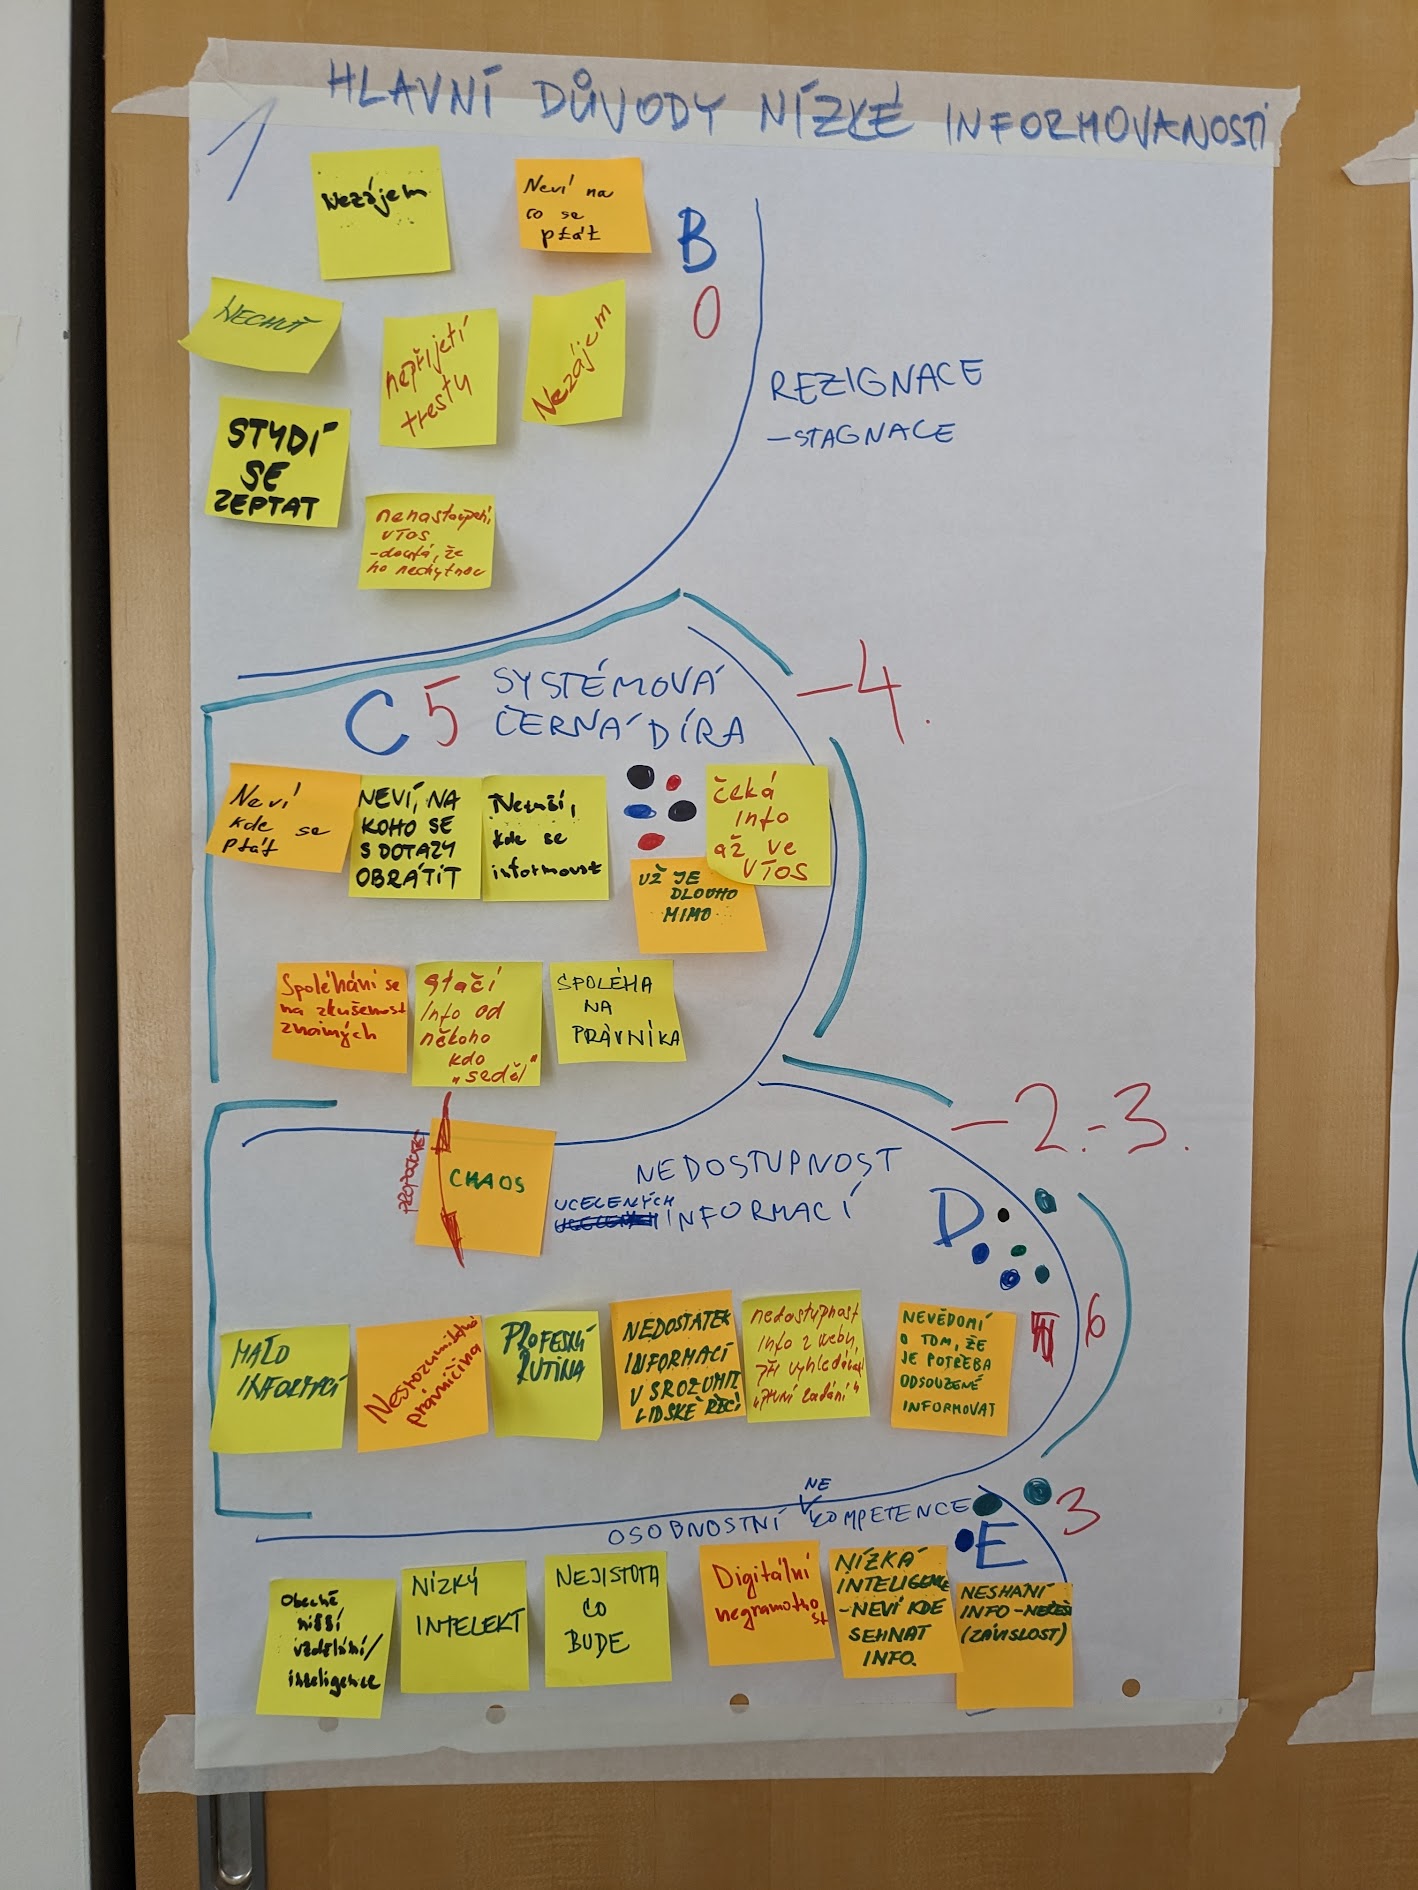 1
HLAVNÍ DŮVODY NÍZKÉ INFORMOVANOSTI
Nezájem
Neví na
co se
ptát
B
0
NECHUŤ
nepřijetí
trestu
Nezájem
REZIGNACE
- STAGNACE
STYDÍ
SE
ZEPTAT
nenastoupení
VTOS
- doufá, že
ho nechytnou
C 5
SYSTÉMOVÁ
ČERNÁ DÍRA
- 4.
Neví
kde se
ptát
NEVÍ, NA
KOHO SE
S DOTAZY
OBRÁTIT
Netuší,
kde se
informovat
čeká
info
až ve
VTOS
UŽ JE
DLOUHO
MIMO
Spoléhání se
na zkušenost
známých
stačí
info od
někoho
kdo
"seděl"
SPOLÉHA
NA
PRÁVNÍKA
- 2.-3.
CHAOS
NEDOSTUPNOST
UCELENÝCH
INFORMACÍ
D
6
MÁLO
INFORMACÍ
Nesrozumitelná
právničina
PROFESNÍ
RUTINA
NEDOSTATEK
INFORMACÍ
V SROZUMIT
LIDSKÉ ŘEČI
nedostupnost
info z webu
při vyhledávání
"první zadání"
NEVĚDOMÍ
O TOM, ŽE
JE POTŘEBA
ODSOUZENÉ
INFORMOVAT
NE
OSOBNOSTNÍ KOMPETENCE
3
E
Obecně
nižší
vzdělání/
inteligence
NÍZKÝ
INTELEKT
NEJISTOTA
CO
BUDE
Digitální
negramotno
st
NÍZKÁ
INTELIGENCE
- NEVÍ KDE
SEHNAT
INFO.
NESHÁNÍ
INFO - NEŘEŠÍ
(ZÁVISLOST)